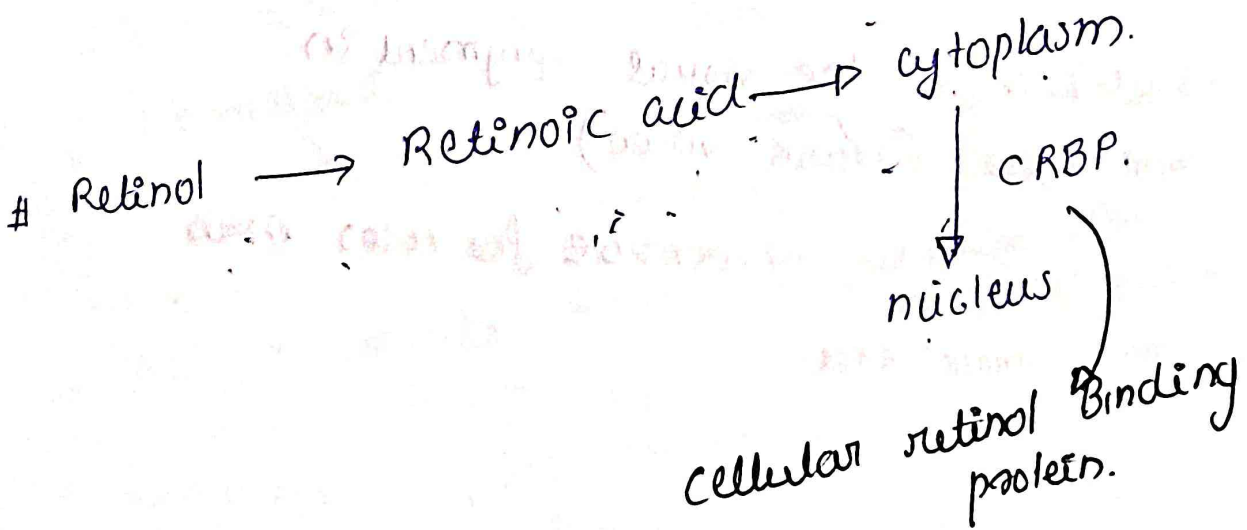 # Retinol → Retinoic acid → cytoplasm.
CRBP.
nucleus
cellular retinol Binding
protein.